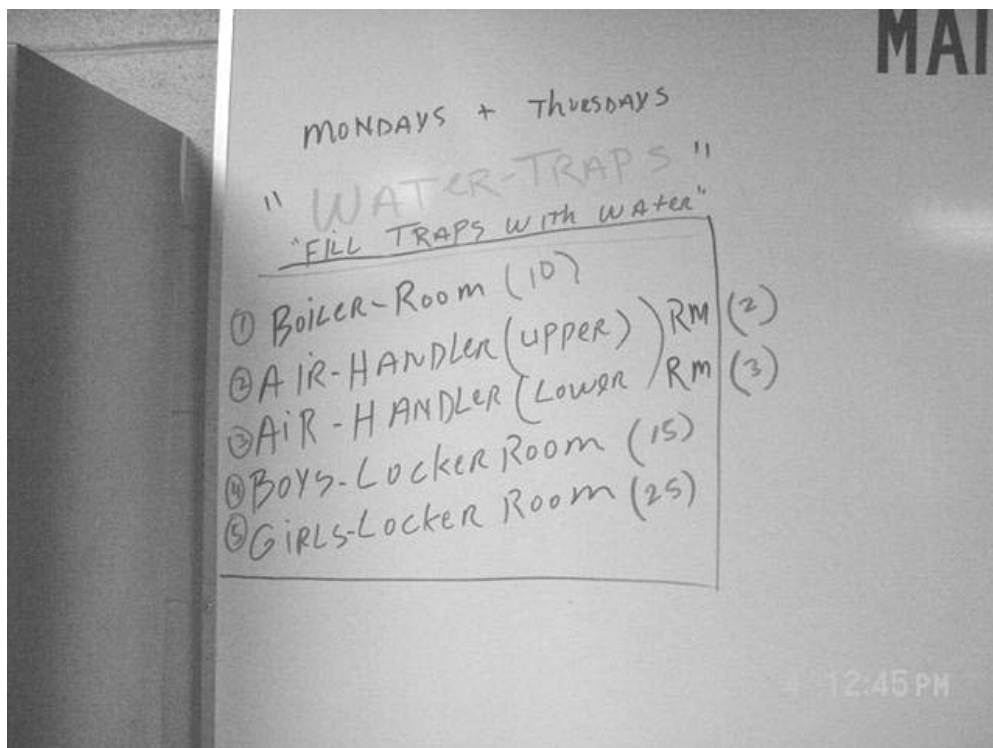 MAI
MONDAYS + THURSDAYS
"WATER-TRAPS"
"FILL TRAPS WITH WATER"
① BOILER-ROOM (10)
② AIR-HANDLER (UPPER) RM (2)
③ AIR-HANDLER (LOWER) RM (3)
④ BOYS-LOCKER ROOM (15)
⑤ GIRLS-LOCKER ROOM (25)
12:45 PM